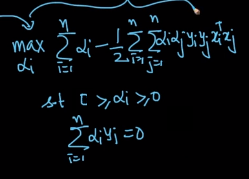 max_{αi} Σ_{i=1}^{n} αi - 1/2 Σ_{i=1}^{n} Σ_{j=1}^{n} αi αj yi yj xi^T xj
st C ≥ αi ≥ 0
Σ_{i=1}^{n} αi yj = 0